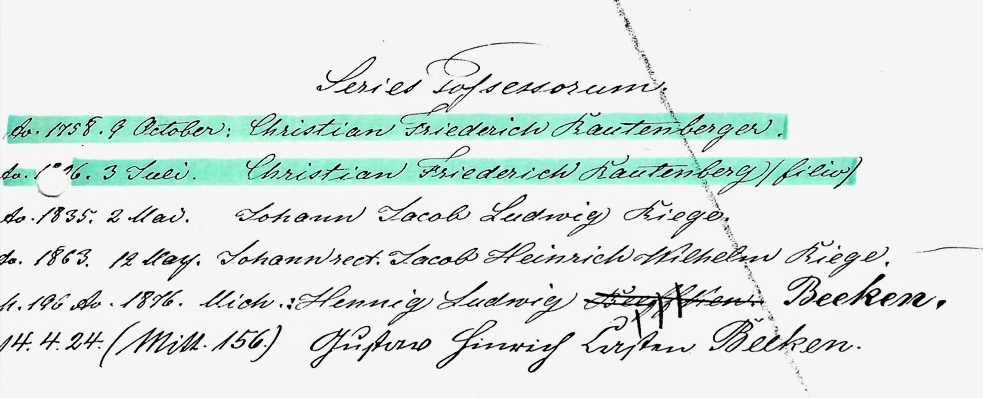 Series Possessorum.
Ao. 1758. 9 October: Christian Friederich Rautenberger.
Ao. 6. 3 Juli. Christian Friederich Rautenberg (filius)
Ao. 1835. 2 Mai. Johann Jacob Ludwig Riege.
Ao. 1863. 12 May. Johann rect. Jacob Heinrich Wilhelm Riege.
196 Ao. 1876. Mich.: Hennig Ludwig Becken.
14.4.24. (Mill. 156.) Gustav Hinrich Casten Becken.